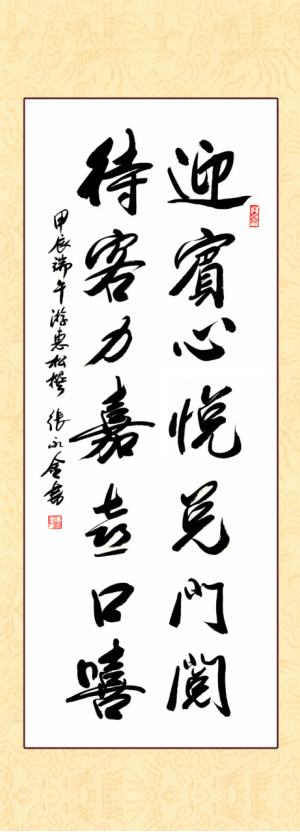 迎賓心悅兌門閱
待客力嘉喜口嘻
甲辰端午游惠松撰 張永金書